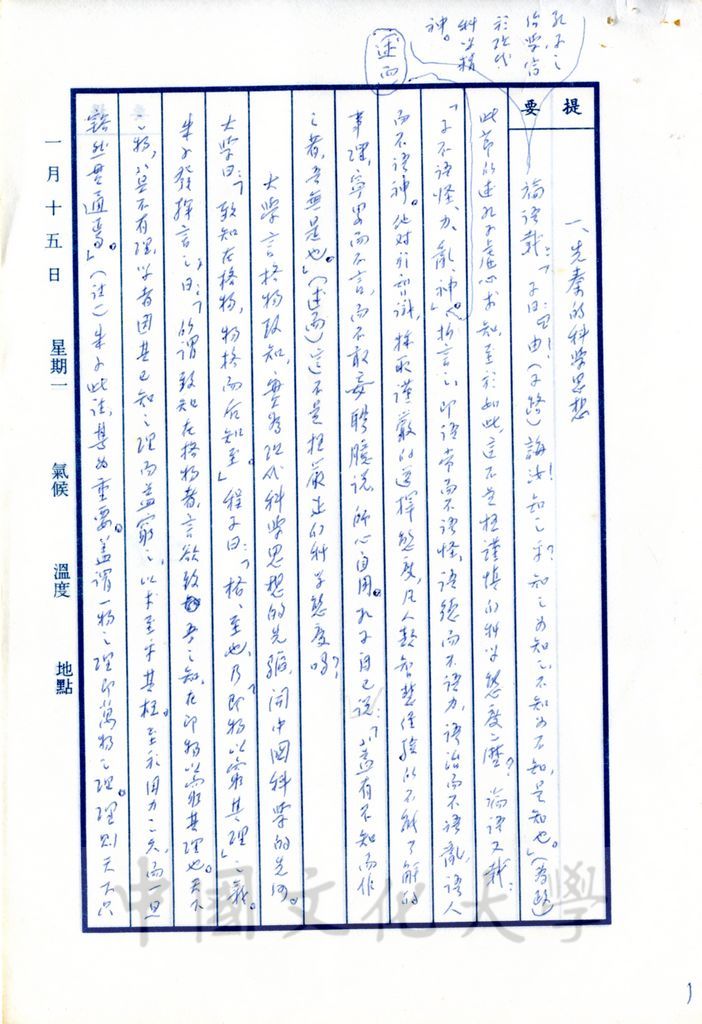 孔子之
治學信
於現代
科學精
神。
述而
提要
一、先秦的科學思想
論語載:「子曰:由!(子路)誨汝!知之乎?知之為知之,不知為不知,是知也。」(為政)
此節所述孔子虛心求知,至於如此,這不是極謹慎的科學態度之一麼?論語又載:
「子不語怪、力、亂、神。」換言之,即語常而不語怪,語德而不語力,語治而不語亂,語人
而不語神。他對於智識,採取謹嚴的選擇態度,凡人類智慧經驗所不能了解的
事理,寧置而不言,而不敢妄聘臆說,師心自用。孔子自己說:「蓋有不知而作
之者,吾無是也。」(述而)這不是極嚴正的科學態度嗎?
大學言格物致知,實為現代科學思想的先驅,開中國科學的先河。
大學曰:「致知在格物,物格而后知至。」程子曰:「格,至也,乃即物以窮其理」之義。
朱子發揮言之,曰:「所謂致知在格物者,言欲致吾之知,在即物以窮其理也。天下
之物,莫不有理,學者因其已知之理而益窮之,以求至乎其極。至於用力之久,而一旦
豁然貫通焉。」(註一)朱子此註,甚為重要。蓋謂一物之理即萬物之理,理則天下只
一月十五日 星期一 氣候 溫度 地點
中國文化大學
1